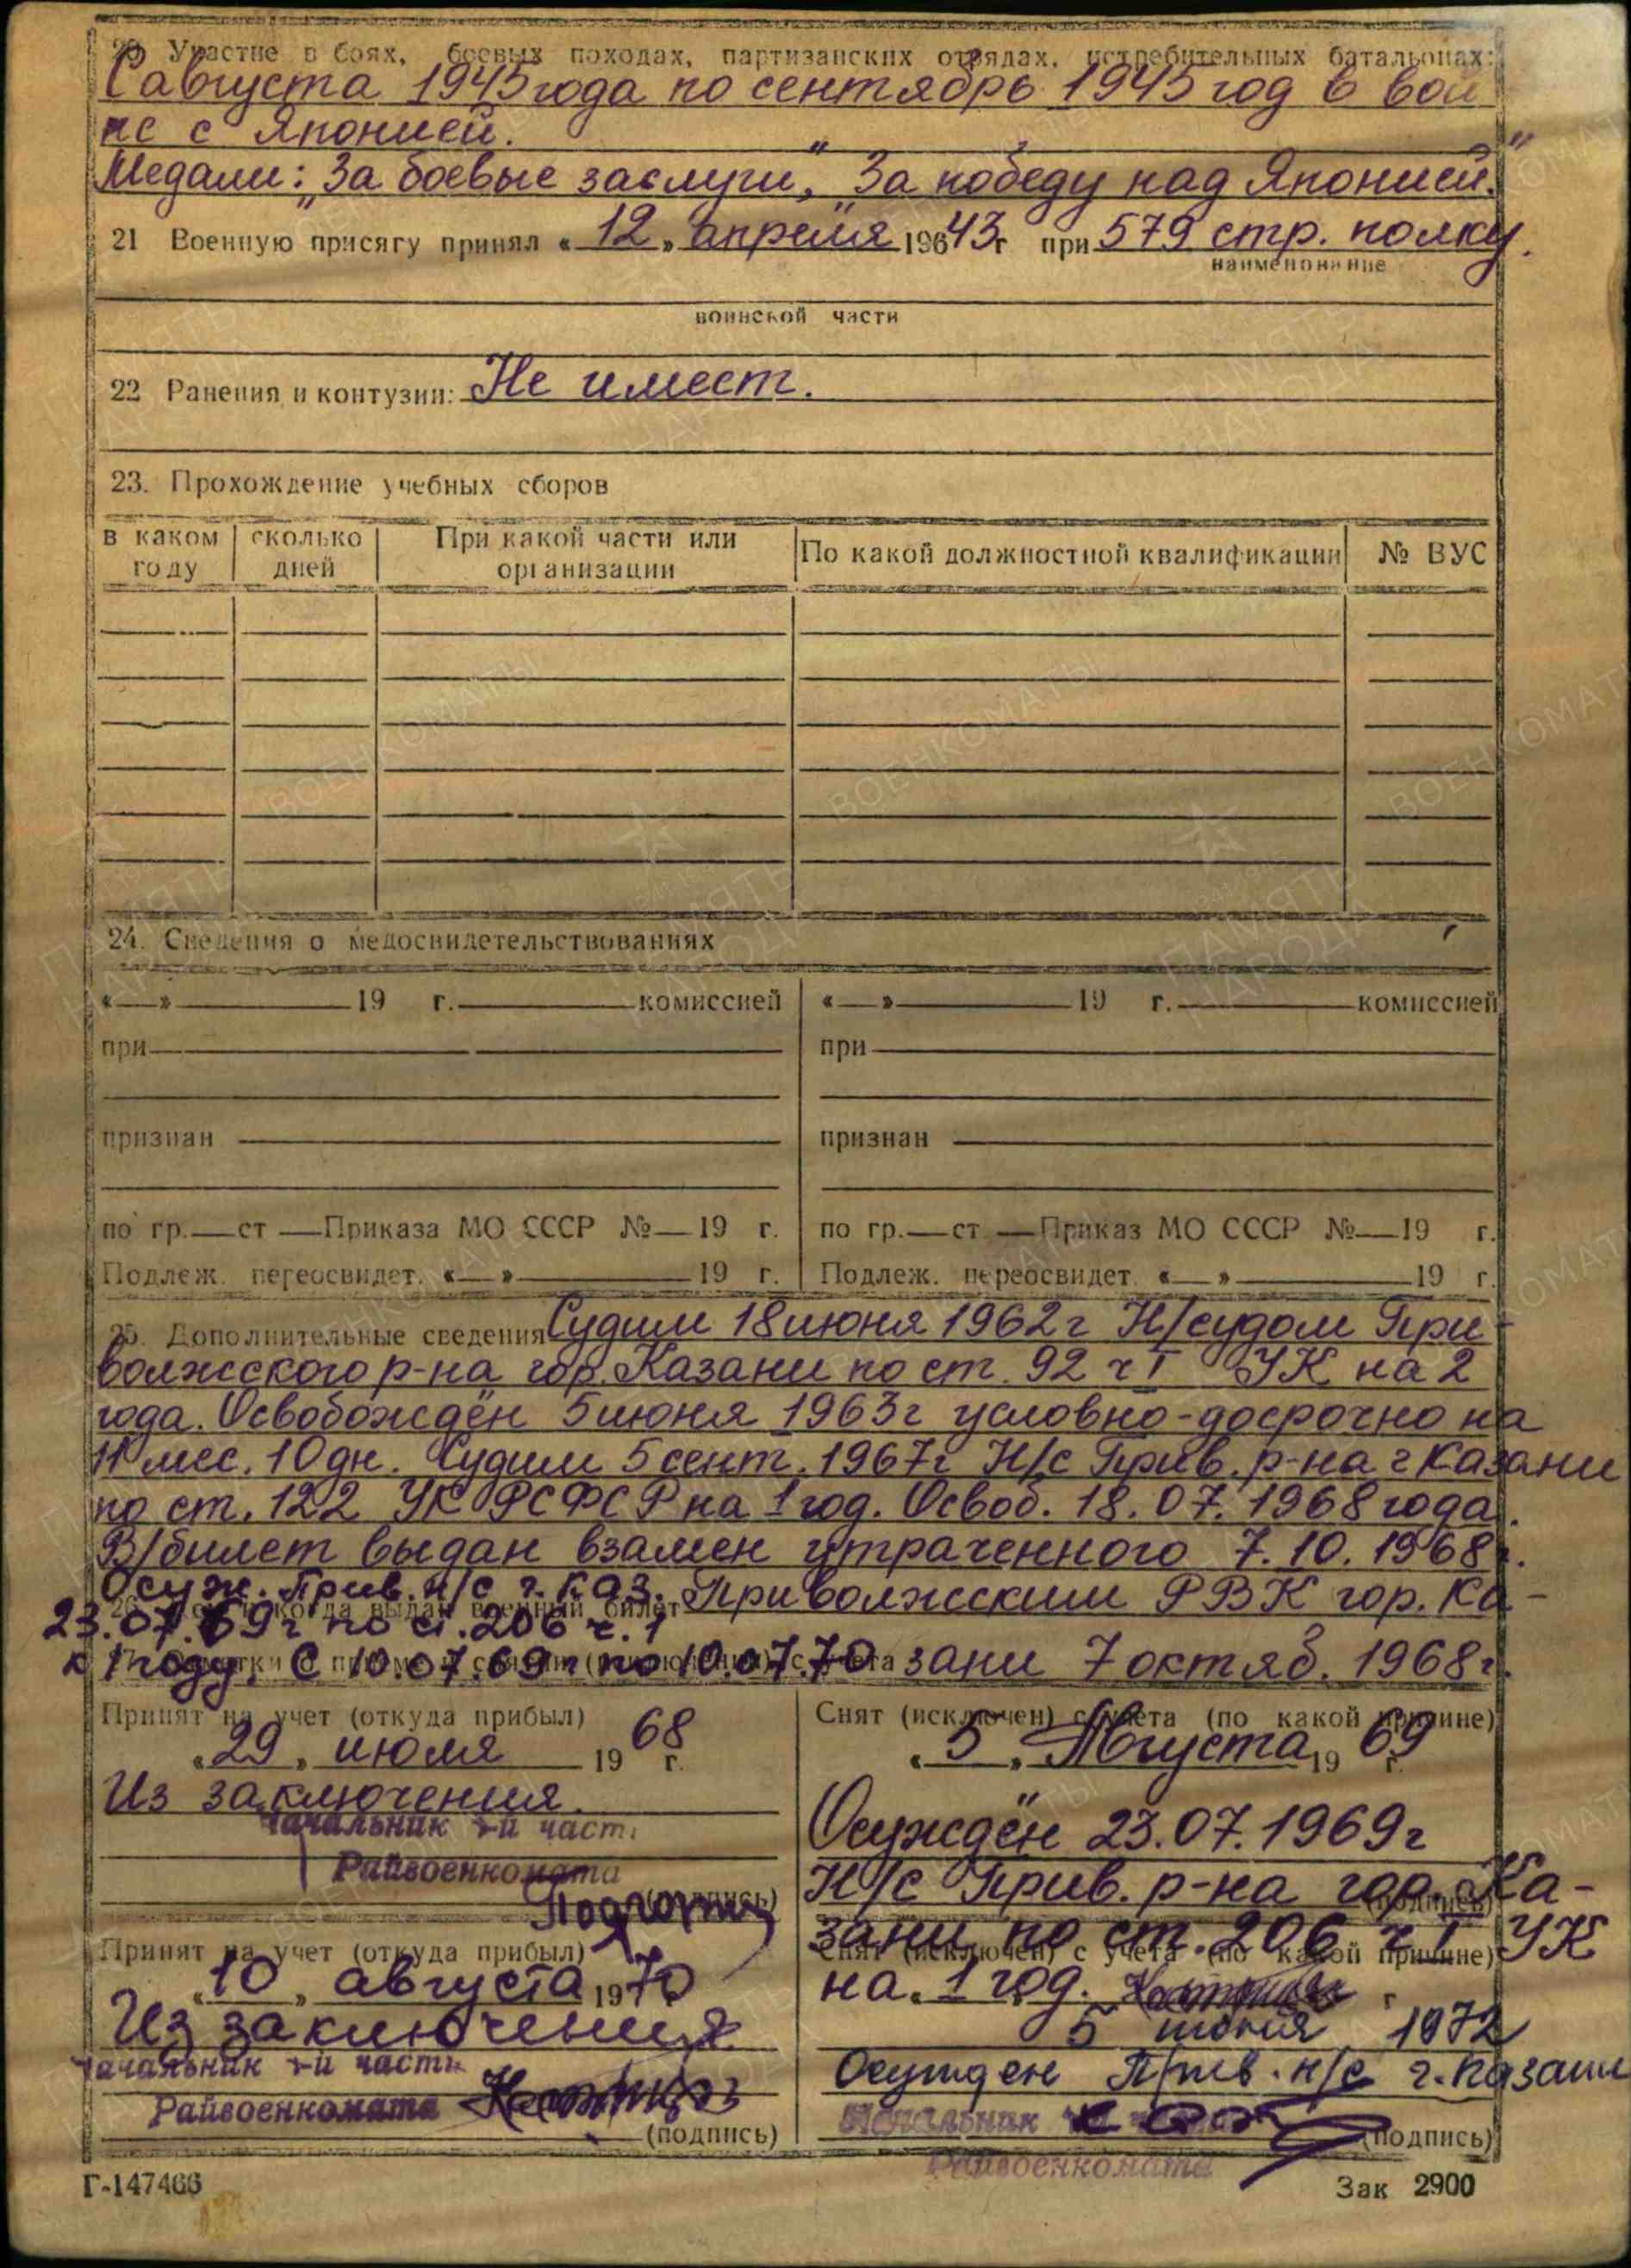 20 Участие в боях, боевых походах, партизанских отрядах, истребительных батальонах:
С августа 1945 года по сентябрь 1945 год в вой
не с Японией.
Медали: „За боевые заслуги", „За победу над Японией."
21 Военную присягу принял « 12 » апреля 196 43 г при 579 стр. полку.
наименование
воинской части
22 Ранения и контузии: Не имеет.
23. Прохождение учебных сборов
в каком году | сколько дней | При какой части или организации | По какой должностной квалификации | № ВУС
24. Сведения о медосвидетельствованиях
«__» 19 г. комиссией «__» 19 г. комиссией
при при
признан признан
по гр. ст Приказа МО СССР № 19 г. по гр. ст Приказ МО СССР № 19 г.
Подлеж. переосвидет. «__» 19 г. Подлеж. переосвидет «__» 19 г.
25. Дополнительные сведения Судим 18 июня 1962 г Н/судом При-
волжского р-на гор. Казани по ст. 92 ч I УК на 2
года. Освобождён 5 июня 1963 г условно-досрочно на
11 мес. 10 дн. Судим 5 сент. 1967 г Н/с Прив. р-на г Казани
по ст. 122 УК РСФСР на 1 год. Освоб. 18.07.1968 года.
В/билет выдан взамен утраченного 7.10.1968 г.
Осуж. Прив. н/с г. Каз. Приволжским РВК гор. Ка-
когда выдан военный билет
23.07.69 г по ст. 206 ч. 1
к 1 году. С 10.07.69 г по 10.07.70 зани 7 октяб. 1968 г.
Принят на учет (откуда прибыл) Снят (исключен) с учета (по какой причине)
« 29 » июля 19 68 г. « 5 » Августа 19 69 г.
Из заключения.
Начальник -й части Осуждён 23.07.1969 г
Райвоенкомата Н/с Прив. р-на гор. Ка-
(подпись) (подпись)
зани по ст. 206 ч I УК
Принят на учет (откуда прибыл) Снят (исключен) с учета (по какой причине)
« 10 » августа 1970 на 1 год.
Из заключения 5 июня 1972
Начальник -й части Осужден Прив. н/с г. Казани
Райвоенкомата Начальник
(подпись) (подпись)
Райвоенкомата
Г-147466 Зак 2900
ПАМЯТЬ НАРОДА
ВОЕНКОМАТЫ